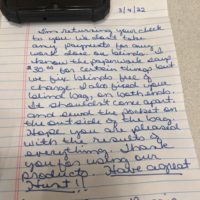 3/4/22
I'm returning your check
to you. We don't take
any payments for any
work done on blinds. I
know the paperwork says
$30.00 for certain things but
we fix blinds free of
charge. I also fixed your
blind bag, on both ends.
It shouldn't come apart.
and sewed the pocket on
the outside of the bag.
Hope you are pleased
with the results of
everything. Thank
you for using our
products. Have a great
Hunt!!